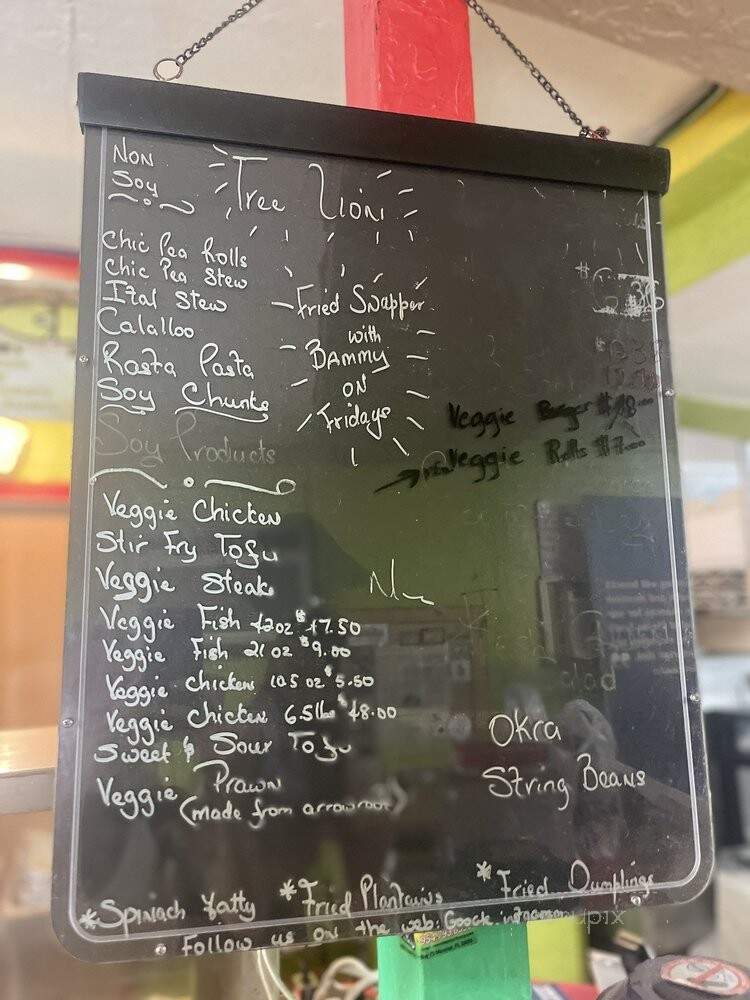 Non
Soy
Tree Lion
Chic Pea Rolls
Chic Pea Stew
Ital Stew
Calalloo
Rasta Pasta
Soy Chunks
Fried Snapper
with
Bammy
on
Fridays
Veggie Burger $18.00
Veggie Rolls $7.00
Soy Products
Veggie Chicken
Stir Fry Tofu
Veggie Steak
Veggie Fish 12oz $17.50
Veggie Fish 21 oz $9.00
Veggie Chicken 10.5 oz $5.50
Veggie Chicken 6.5lbs $48.00
Sweet & Sour Tofu
Veggie Prawn
(made from arrowroot)
Okra
String Beans
*Spinach Patty *Fried Plantains *Fried Dumplings
Follow us on the web: